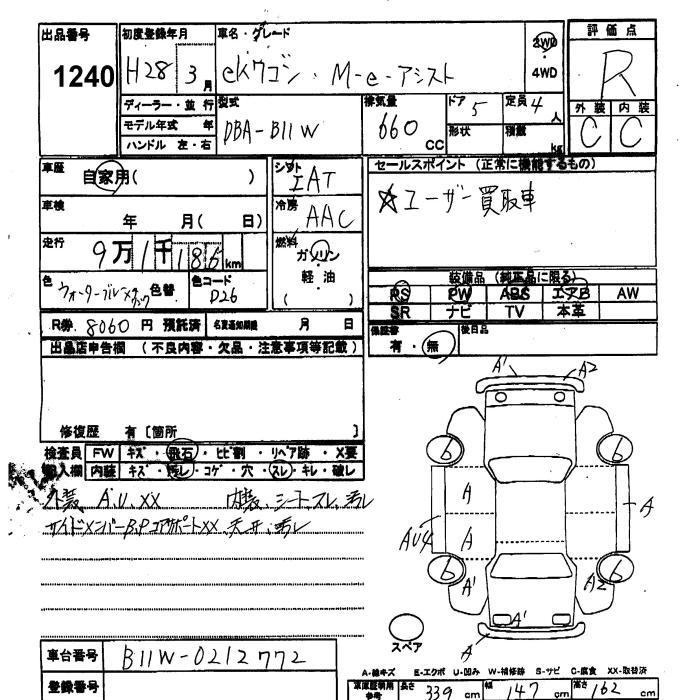 出品番号 1240
初度登録年月 H28 3月
車名・グレード eKワゴン・M-e-アシスト
2WD
4WD
評価点 R
外装 C 内装 C
ディーラー・並行
モデル年式 年
ハンドル 左・右
型式 DBA-B11W
排気量 660 CC
ドア 5
形状
定員 4人
積載 kg
車歴 自家用( )
シフト IAT
セールスポイント (正常に機能するもの)
☆ユーザー買取車
車検 年 月( 日)
冷房 AAC
走行 9万1千185km
燃料 ガソリン・軽油
( )
色 色替
色コード D26
装備品 (純正品に限る)
RS PW ABS エアB AW
SR ナビ TV 本革
R券 8060円 預託済 名変通知期限 月 日
保証書 有・無
後日品
出品店申告欄 (不良内容・欠品・注意事項等記載)
修復歴 有〔箇所 〕
検査員 FW キズ・飛石・ヒビ割・リペア跡・X要
記入欄 内装 キズ・汚レ・コゲ・穴・スレ・キレ・破レ
外装 A.U.XX 内装、シートスレ、汚レ
サイドメンバーB.P コアサポートXX、天井、汚レ
A' A2
6 6
A
A
AU4 A
6 6
A' A2
A'
スペア
A
車台番号 B11W-0212772
登録番号
A-線キズ E-エクボ U-凹み W-補修跡 S-サビ C-腐食 XX-取替済
長さ 339 cm 幅 147 cm 高さ 162 cm